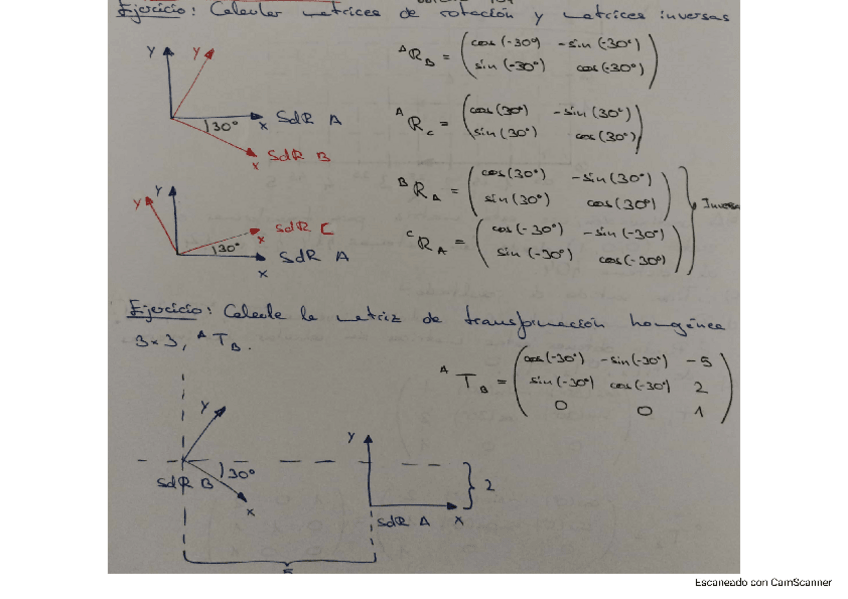 Ejercicio: Calcular matrices de rotación y matrices inversas
Y Y
30°
X SdR A
X SdR B
ᴬR_B = (cos(-30°) -sin(-30°)
sin(-30°) cos(-30°))
ᴬR_C = (cos(30°) -sin(30°)
sin(30°) cos(30°))
ᴮR_A = (cos(30°) -sin(30°)
sin(30°) cos(30°))
ᶜR_A = (cos(-30°) -sin(-30°)
sin(-30°) cos(-30°))
} Inversa
Y Y
SdR C
X
30°
SdR A
X
Ejercicio: Calcule la matriz de transformación homogénea
3×3, ᴬT_B.
ᴬT_B = (cos(-30°) -sin(-30°) -5
sin(-30°) cos(-30°) 2
0 0 1)
Y
30°
SdR B
X
Y
} 2
SdR A X
5
Escaneado con CamScanner